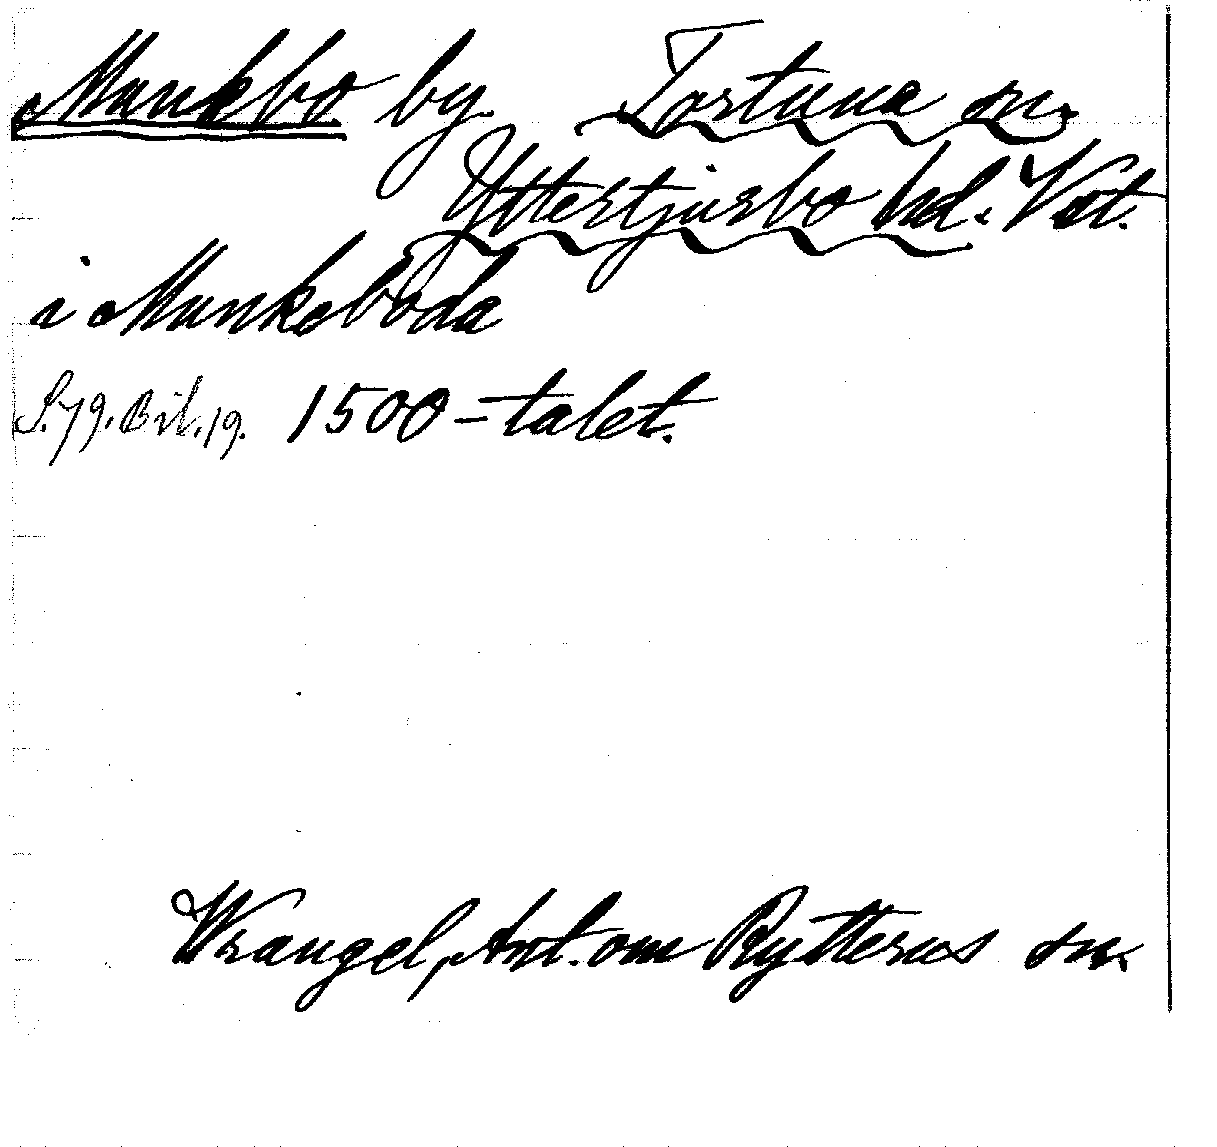 Munkbo by Tortuna sn.
Yttertjurbo hd. Vst.
i Munkeboda
S. 79. Bil. 19. 1500-talet.
Wrangel, Ant. om Rytterns sn.